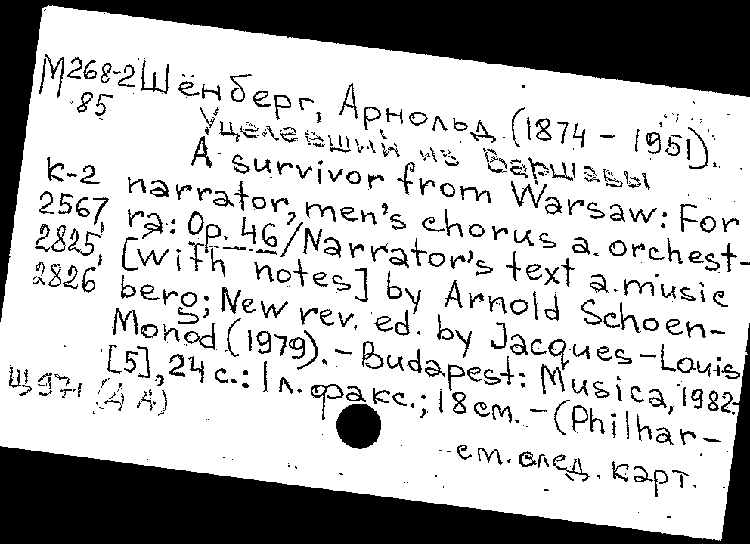 М268-2 Шёнберг, Арнольд (1874 – 1951).
85 Уцелевший из Варшавы
A survivor from Warsaw: For
к-2 narrator, men's chorus a. orchest-
2567, ra: Op. 46/Narrator's text a. music
2825, [with notes] by Arnold Schoen-
2826 berg; New rev. ed. by Jacques-Louis
Monod (1979). – Budapest: Musica, 1982.
[5], 24 с.: 1 л. факс.; 18 см. – (Philhar-
Щ971 (А А)
см. след. карт.